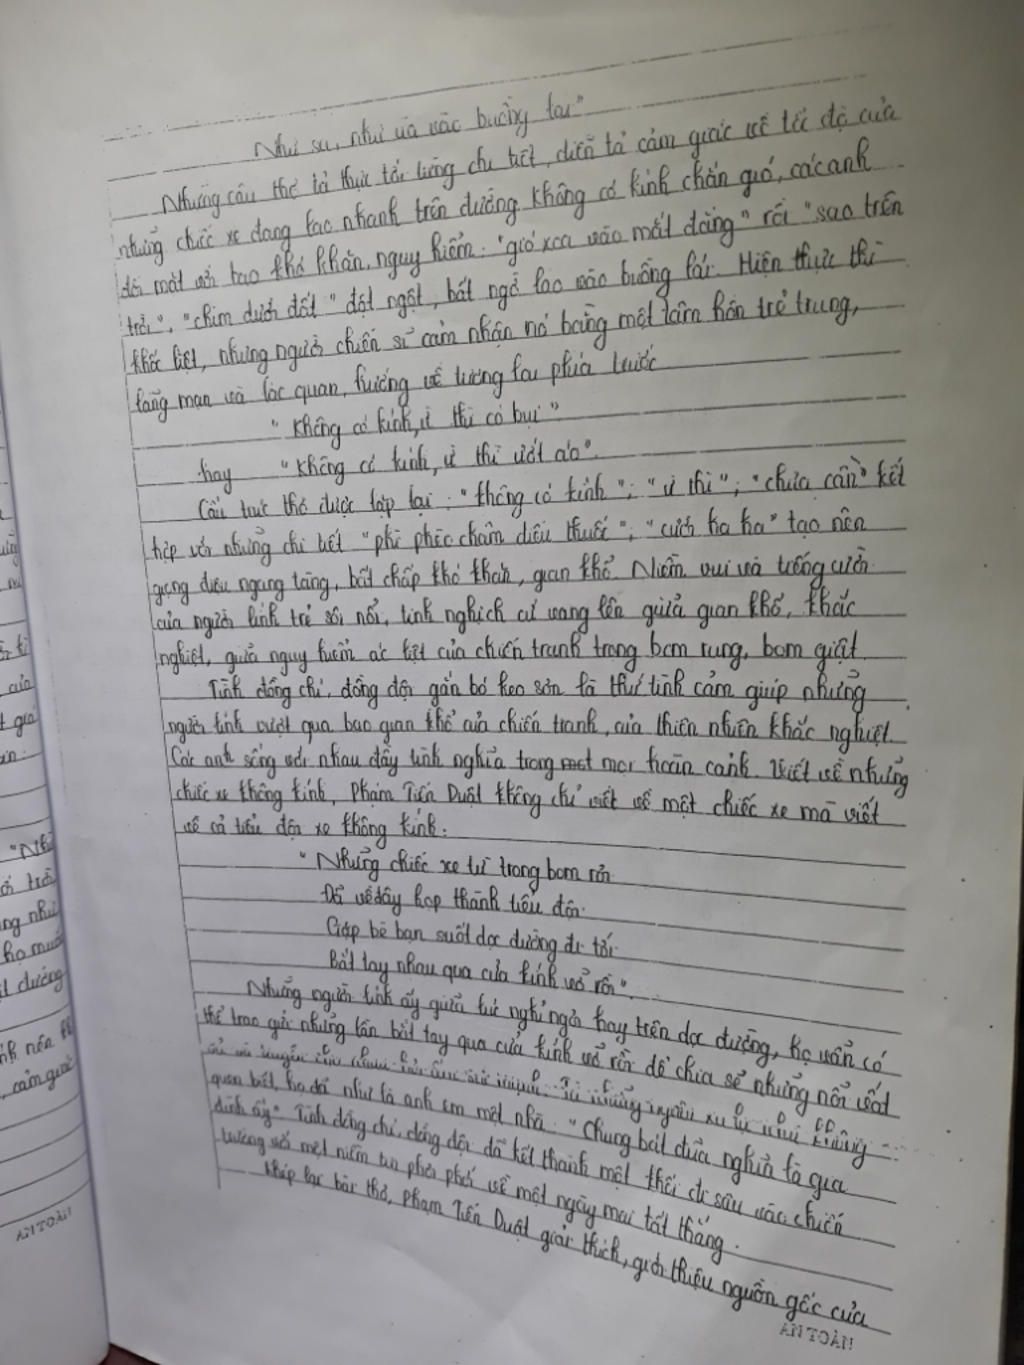 Như sa, như ùa vào buồng lái"
Những câu thơ tả thực tới từng chi tiết, diễn tả cảm giác về tốc độ của
những chiếc xe đang lao nhanh trên đường. Không có kính chắn gió, các anh
đối mặt với bao khó khăn, nguy hiểm: "gió xoa vào mắt đắng" rồi "sao trên
trời", "chim dưới đất" đột ngột, bất ngờ lao vào buồng lái. Hiện thực thì
khốc liệt, nhưng người chiến sĩ cảm nhận nó bằng một tâm hồn trẻ trung,
lãng mạn và lạc quan, hướng về tương lai phía trước
"Không có kính, ừ thì có bụi"
hay "Không có kính, ừ thì ướt áo".
Cấu trúc thơ được lặp lại: "không có kính"; "ừ thì"; "chưa cần" kết
hợp với những chi tiết "phì phèo châm điếu thuốc"; "cười ha ha" tạo nên
giọng điệu ngang tàng, bất chấp khó khăn, gian khổ. Niềm vui và tiếng cười
của người lính trẻ sôi nổi, tinh nghịch cứ vang lên giữa gian khổ, khắc
nghiệt, giữa nguy hiểm ác liệt của chiến tranh trong bom rung, bom giật.
Tình đồng chí, đồng đội gắn bó keo sơn là thứ tình cảm giúp những
người lính vượt qua bao gian khổ của chiến tranh, của thiên nhiên khắc nghiệt.
Các anh sống với nhau đầy tình nghĩa trong mọi hoàn cảnh. Viết về những
chiếc xe không kính, Phạm Tiến Duật không chỉ viết về một chiếc xe mà viết
về cả tiểu đội xe không kính:
"Những chiếc xe từ trong bom rơi
Đã về đây họp thành tiểu đội
Gặp bè bạn suốt dọc đường đi tới
Bắt tay nhau qua cửa kính vỡ rồi".
Những người lính ấy giữa lúc nghỉ ngơi hay trên dọc đường, họ vẫn có
thể trao gửi những lần bắt tay qua cửa kính vỡ rồi để chia sẻ những nỗi vất
vả và truyền cho nhau sức mạnh. Từ những người xa lạ như không
quen biết, họ đã như là anh em một nhà. "Chung bát đũa nghĩa là gia
đình ấy". Tình đồng chí, đồng đội đã kết thành một khối đi sâu vào chiến
trường với một niềm tin phơi phới về một ngày mai tất thắng.
Khép lại bài thơ, Phạm Tiến Duật giải thích, giới thiệu nguồn gốc của
AN TOÀN
"Nh
ng như
đường
nh nên
cảm giác
AN TOÀN